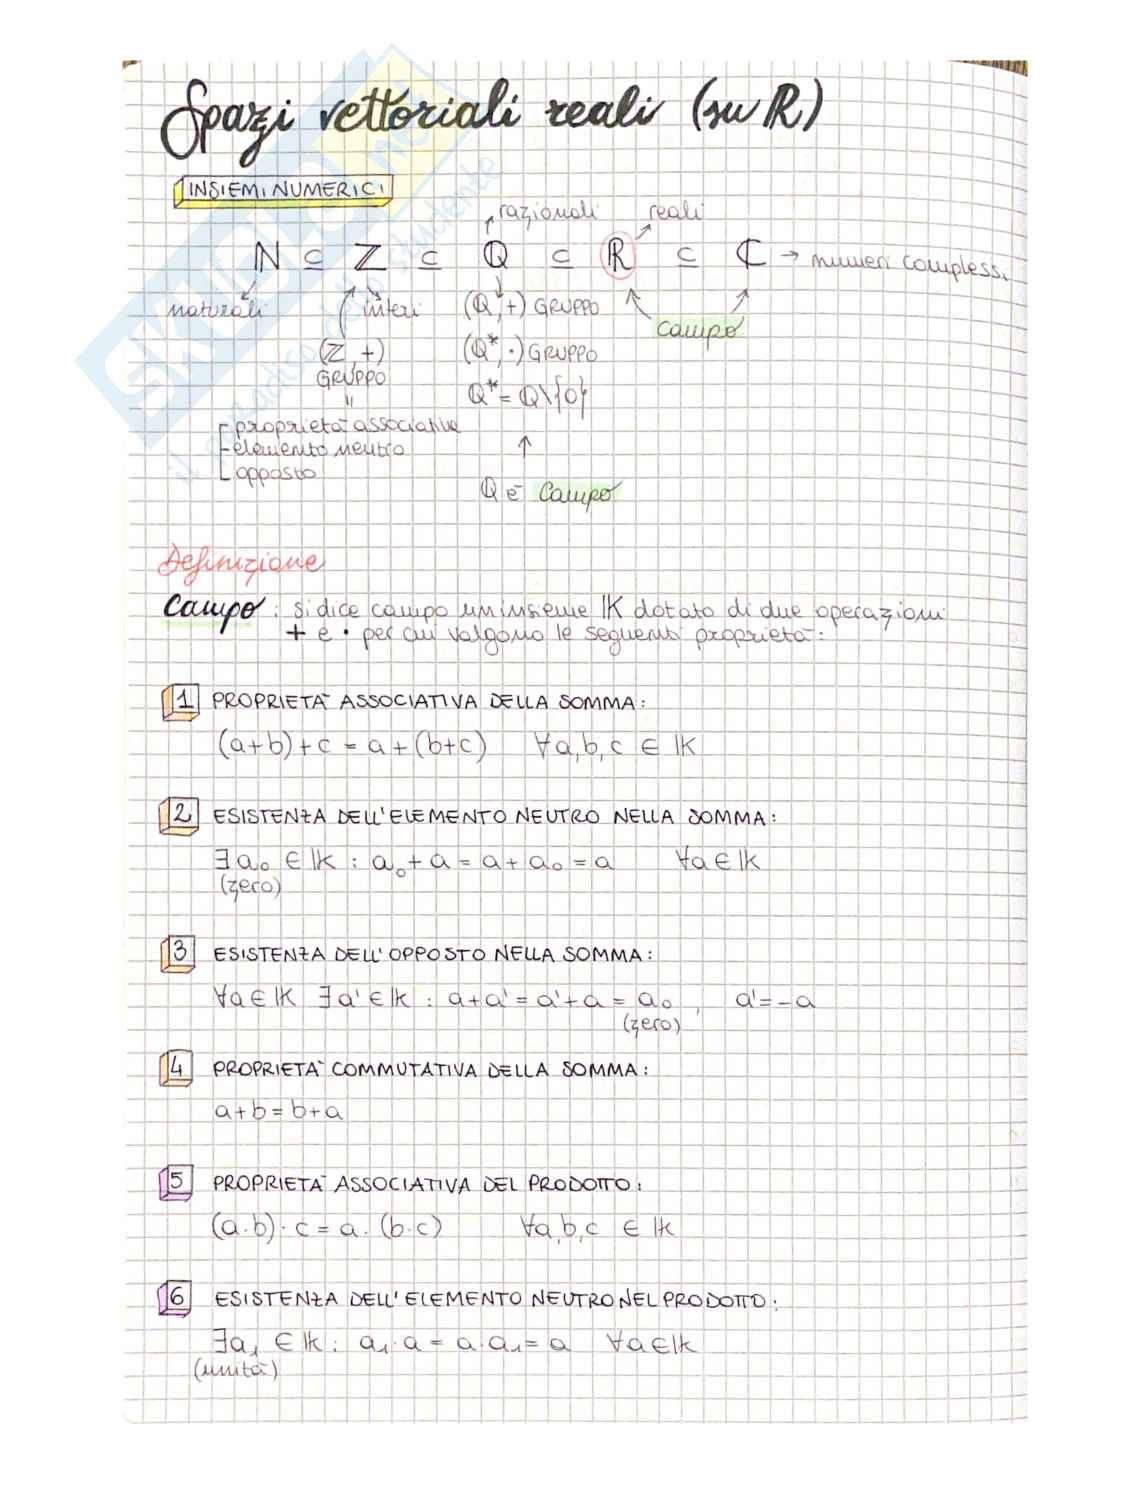 Spazi vettoriali reali (su ℝ)
INSIEMI NUMERICI
razionali reali
ℕ ⊆ ℤ ⊆ ℚ ⊆ ℝ ⊆ ℂ → numeri complessi
naturali interi (ℚ,+) GRUPPO campo
(ℤ,+) (ℚ*,·) GRUPPO
GRUPPO
ℚ* = ℚ\{0}
proprietà associativa
elemento neutro
opposto
ℚ è campo
Definizione
Campo : si dice campo un insieme 𝕂 dotato di due operazioni
+ e · per cui valgono le seguenti proprietà:
1 PROPRIETÀ ASSOCIATIVA DELLA SOMMA:
(a+b)+c = a+(b+c) ∀a,b,c ∈ 𝕂
2 ESISTENZA DELL'ELEMENTO NEUTRO NELLA SOMMA:
∃a₀ ∈ 𝕂 : a₀+a = a+a₀ = a ∀a∈𝕂
(zero)
3 ESISTENZA DELL'OPPOSTO NELLA SOMMA:
∀a∈𝕂 ∃a'∈𝕂 : a+a' = a'+a = a₀, a'=-a
(zero)
4 PROPRIETÀ COMMUTATIVA DELLA SOMMA:
a+b = b+a
5 PROPRIETÀ ASSOCIATIVA DEL PRODOTTO:
(a·b)·c = a·(b·c) ∀a,b,c ∈ 𝕂
6 ESISTENZA DELL'ELEMENTO NEUTRO NEL PRODOTTO:
∃a₁ ∈ 𝕂 : a₁·a = a·a₁ = a ∀a∈𝕂
(unità)
SKUOLA.net
il paradiso dello studente